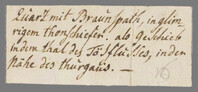 Quarz mit Braunspath, in glim-
rigem thonschiefer. als geschieb
in dem thal des Tößflusses, in der
Nähe des thurgaus. —